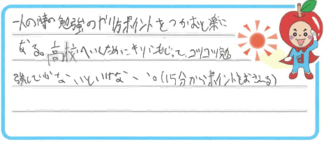 一人の時の勉強のやり方ポイントをつかむと楽に
なる。高校へいくためにキリかえて、コツコツ勉
強していかないといけない。(15分からポイントをおさえる)